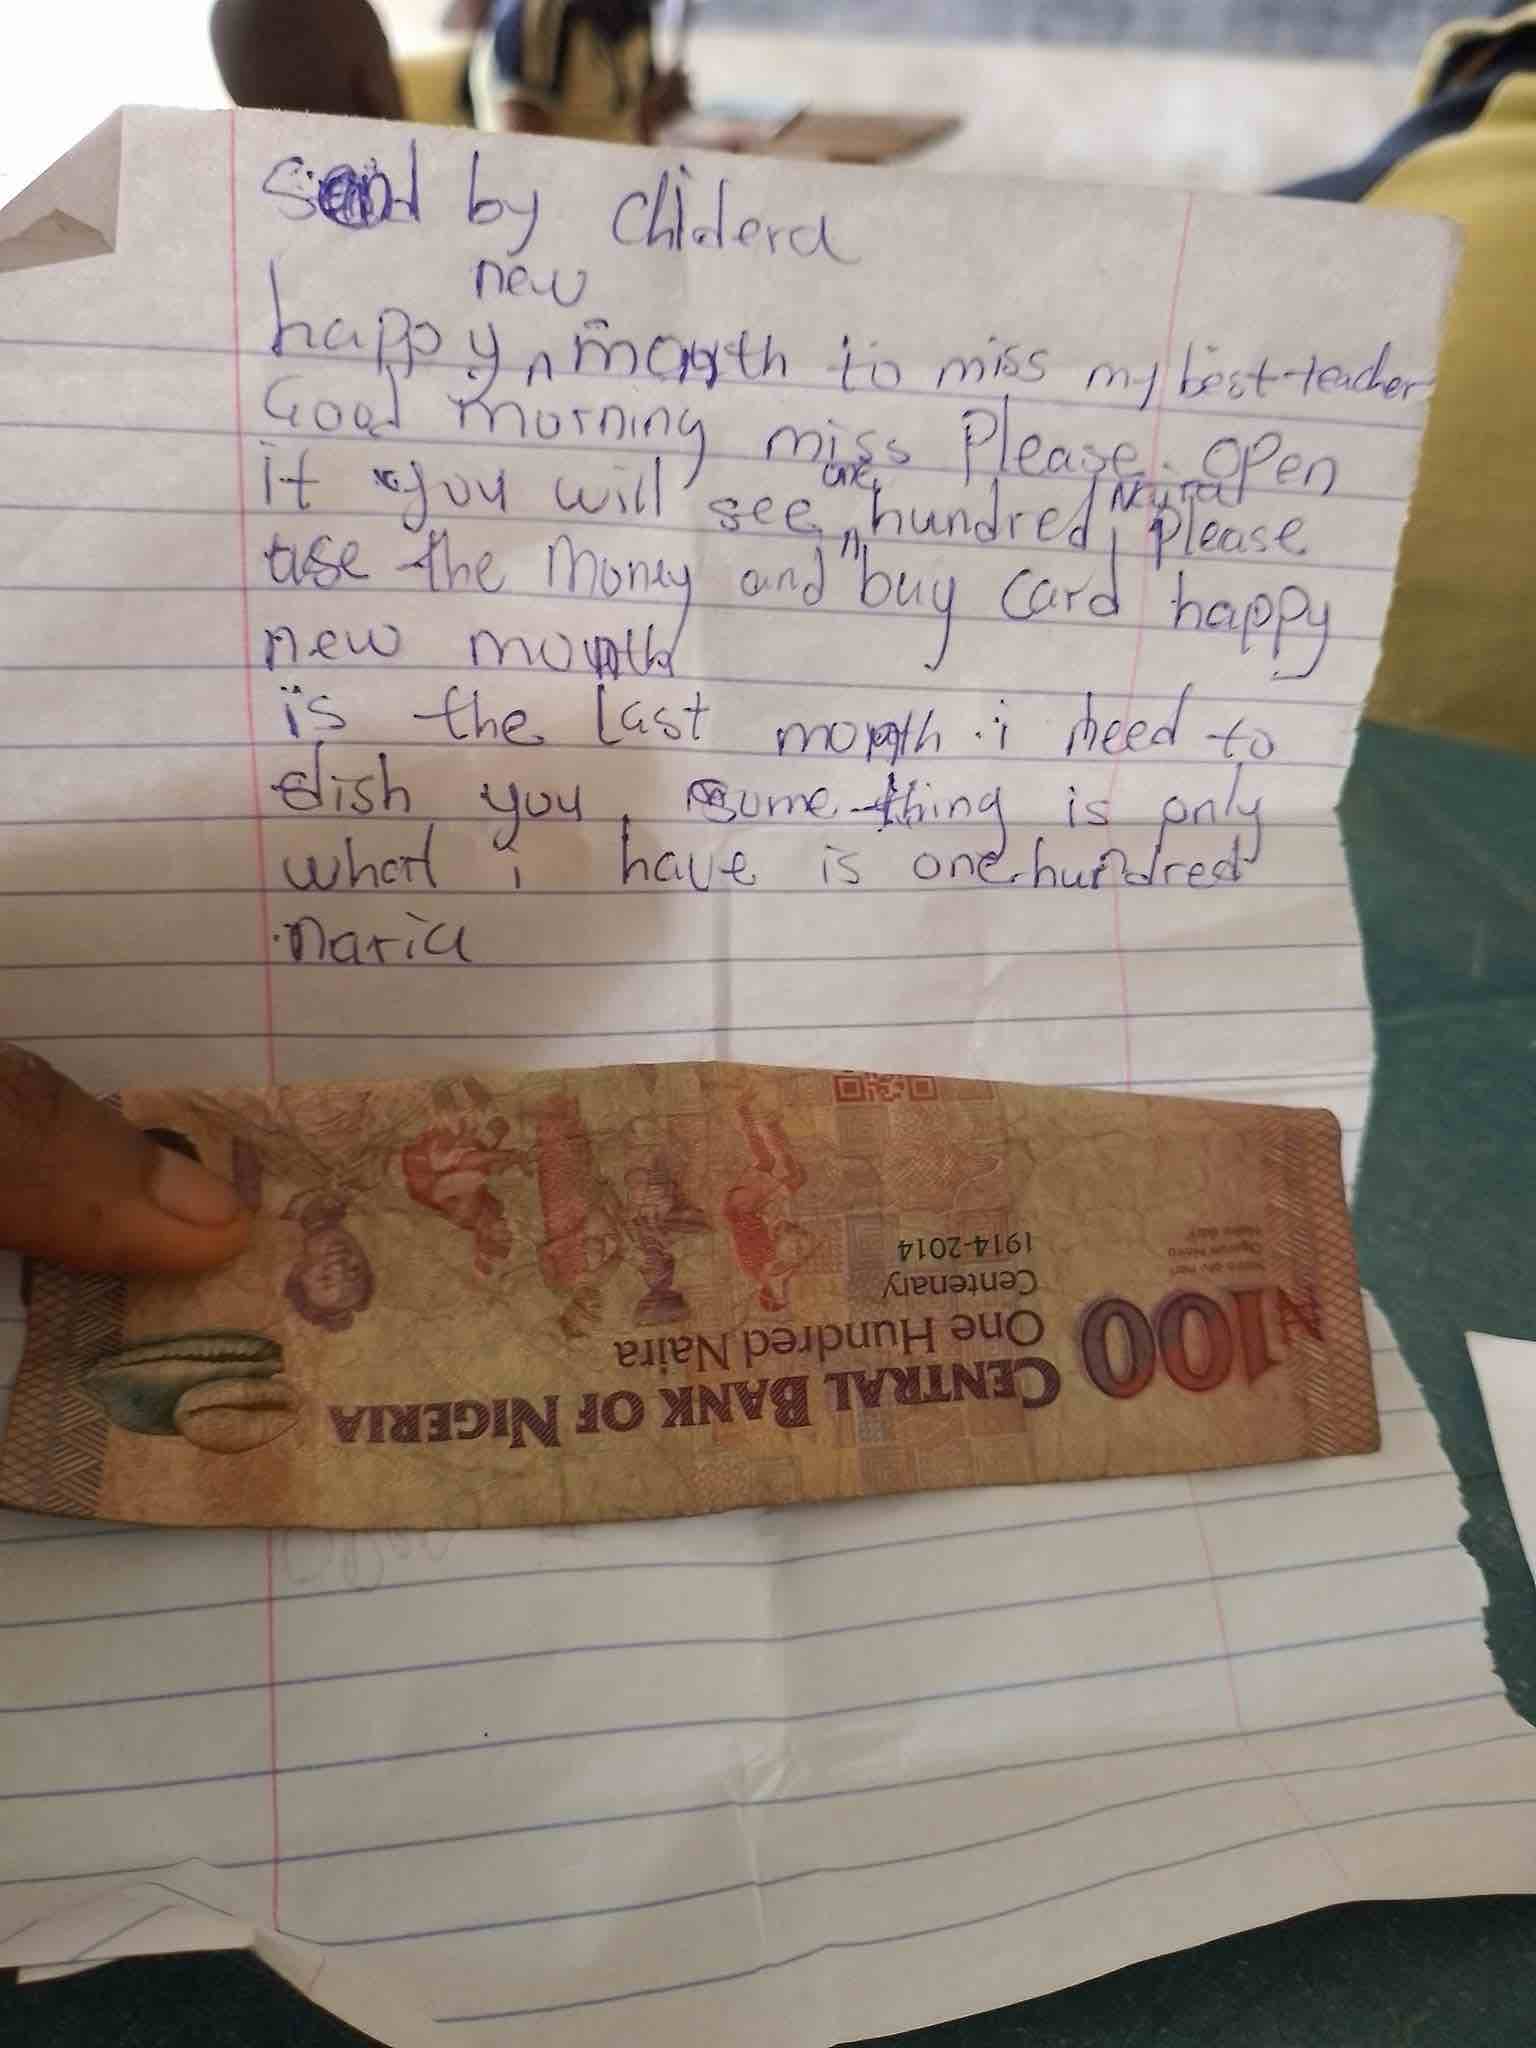 Send by chidera
happy new month to miss my best teacher
Good morning miss Please open
it you will see one hundred Nayra please
use the money and buy card happy
new month
is the last month i need to
dish you some-thing is only
what i have is one hundred
naria
₦100
CENTRAL BANK OF NIGERIA
One Hundred Naira
Centenary
1914-2014